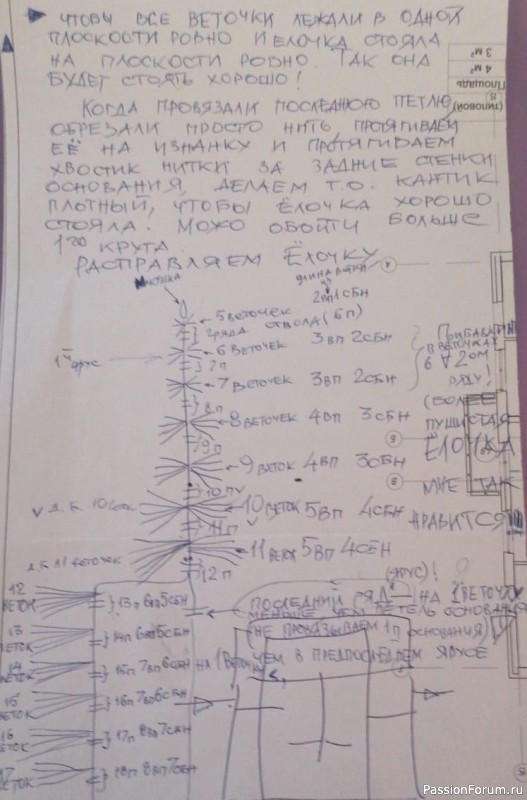 ЧТОБЫ ВСЕ ВЕТОЧКИ ЛЕЖАЛИ В ОДНОЙ
ПЛОСКОСТИ РОВНО И ЕЛОЧКА СТОЯЛА
НА ПЛОСКОСТИ РОВНО. ТАК ОНА
БУДЕТ СТОЯТЬ ХОРОШО!
3 м²
4 м²
Площадь
(типовой)
КОГДА ПРОВЯЗАЛИ ПОСЛЕДНЮЮ ПЕТЛЮ,
ОБРЕЗАЛИ ПРОСТО НИТЬ, ПРОТЯГИВАЕМ
ЕЁ НА ИЗНАНКУ И ПРОТЯГИВАЕМ
ХВОСТИК НИТКИ ЗА ЗАДНИЕ СТЕНКИ
ОСНОВАНИЯ, ДЕЛАЕМ Т.О. КАНТИК
ПЛОТНЫЙ, ЧТОБЫ ЁЛОЧКА ХОРОШО
СТОЯЛА. МОЖО ОБОЙТИ БОЛЬШЕ
1ГО КРУГА.
РАСПРАВЛЯЕМ ЁЛОЧКУ
МАКУШКА
2ВП 1СБН
5 ВЕТОЧЕК
2 РЯДА СТВОЛА (6П)
1Й ЯРУС
6 ВЕТОЧЕК 3ВП 2СБН
7П
7 ВЕТОЧЕК 3ВП 2СБН
ПРИБАВЛЯЛ
В ВЕТОЧКАХ
6 V 2ОМ
РЯДУ!
8П
8 ВЕТОЧЕК 4ВП 3СБН
9П
9 ВЕТОК 4ВП 3СБН
(БОЛЕЕ
ПУШИСТАЯ
ЁЛОЧКА
МНЕ ТАК
НРАВИТСЯ
10П V
V Д.Б. 10 веток
10 ВЕТОК 5ВП 4СБН
11П V
Д.Б. 11 веточек
11 ВЕТОК 5ВП 4СБН
12П
12 ВЕТОК
13П 6ВП 5СБН
13 ВЕТОК
14П 6ВП 5СБН
14 ВЕТОК
15П 7ВП 6СБН
15 ВЕТОК
16П 7ВП 6СБН
16 ВЕТОК
17П 8ВП 7СБН
17 ВЕТОК
18П 8ВП 7СБН
(ЯРУС)!
ПОСЛЕДНИЙ РЯД НА 1 ВЕТОЧКУ
МЕНЬШЕ ЧЕМ ПЕТЕЛЬ ОСНОВАНИЯ
(НЕ ПРОВЯЗЫВАЕМ 1П ОСНОВАНИЯ)
НА 1 ВЕТОЧКУ ЧЕМ В ПРЕДПОСЛЕДНЕМ ЯРУСЕ
PassionForum.ru